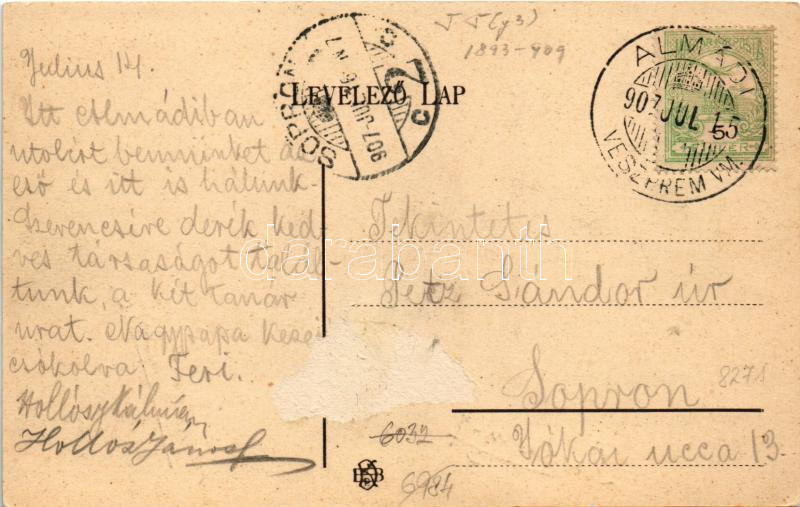 Julius 14.
Itt Almádiban
utolért bennünket az
eső és itt is hálunk.
Szerencsére derék ked
ves társaságot talál-
tunk, a két tanár
urat. Nagypapa kezeit
csókolva Feri.
Hollósy Kálmán
Hollós János
LEVELEZŐ LAP
1893-909
SOPRON
907 JUL
C 2 C
ALMÁDI
907 JUL 15
VESZPRÉM VM.
Tekintetes
Petz Sándor úr
Sopron
Jókai ucca 13.
8271
6032
6984
darabanth